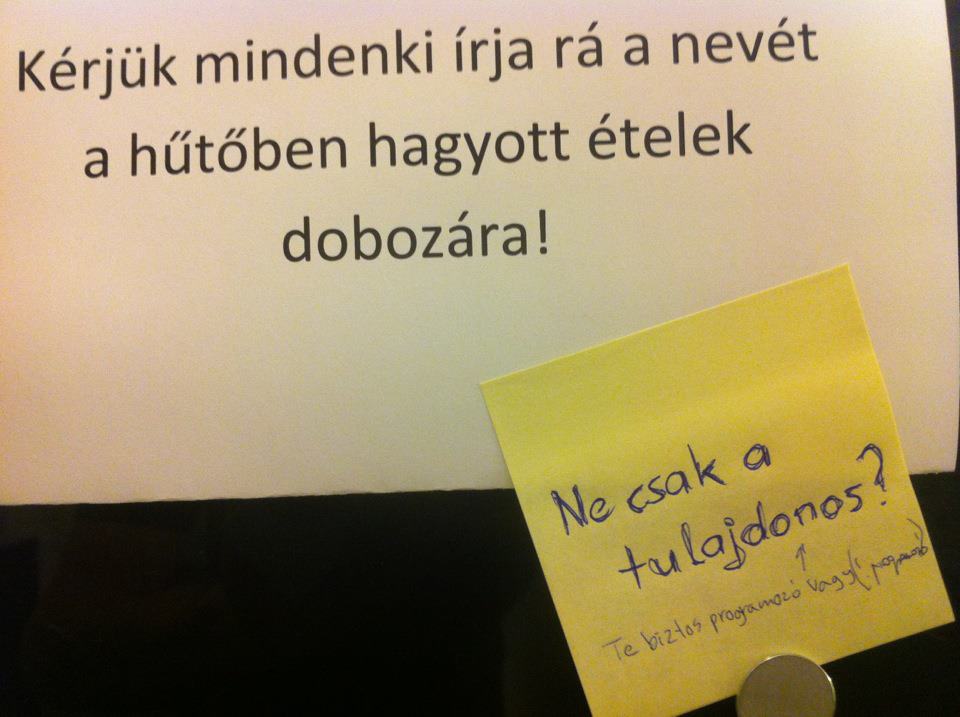 Kérjük mindenki írja rá a nevét
a hűtőben hagyott ételek
dobozára!
Ne csak a
tulajdonos?
Te biztos programozó vagy